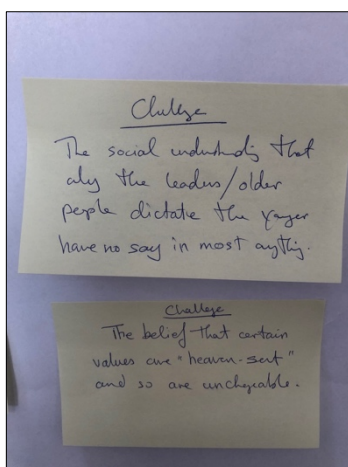 Challenge
The social understanding that
only the leaders/older
people dictate the younger
have no say in most anything.
Challenge
The belief that certain
values are "heaven-sent"
and so are unchangeable.